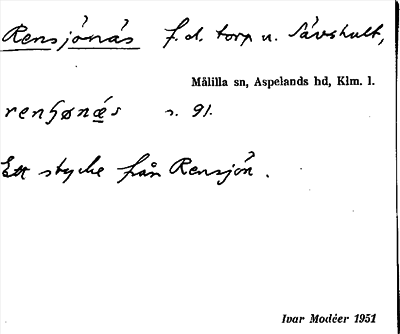 Rensjönäs f. d. torp u. Sävshult,
Målilla sn, Aspelands hd, Klm. l.
renʃønæ̀s s. 91.
Ett stycke från Rensjön.
Ivar Modéer 1951